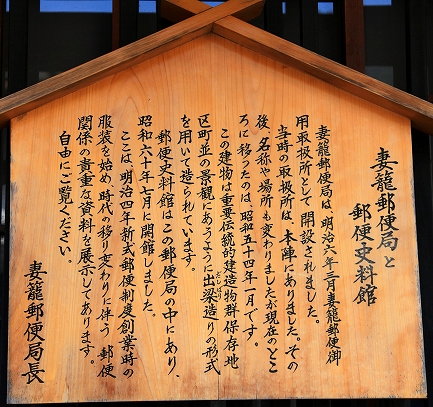 妻籠郵便局と
郵便史料館
妻籠郵便局は、明治六年三月妻籠郵便御
用取扱所として開設されました。
当時の取扱所は、本陣にありました。その
後、名称や場所も変わりましたが現在のとこ
ろに移ったのは、昭和五十四年一月です。
この建物は重要伝統的建造物群保存地
区町並の景観にあうように出梁造りの形式
だしばり
を用いて造られています。
郵便史料館はこの郵便局の中にあり、
昭和六十年七月に開館しました。
ここは、明治四年新式郵便制度創業時の
服装を始め時代の移り変わりに伴う郵便
関係の貴重な資料を展示してあります。
自由にご覧ください。
妻籠郵便局長